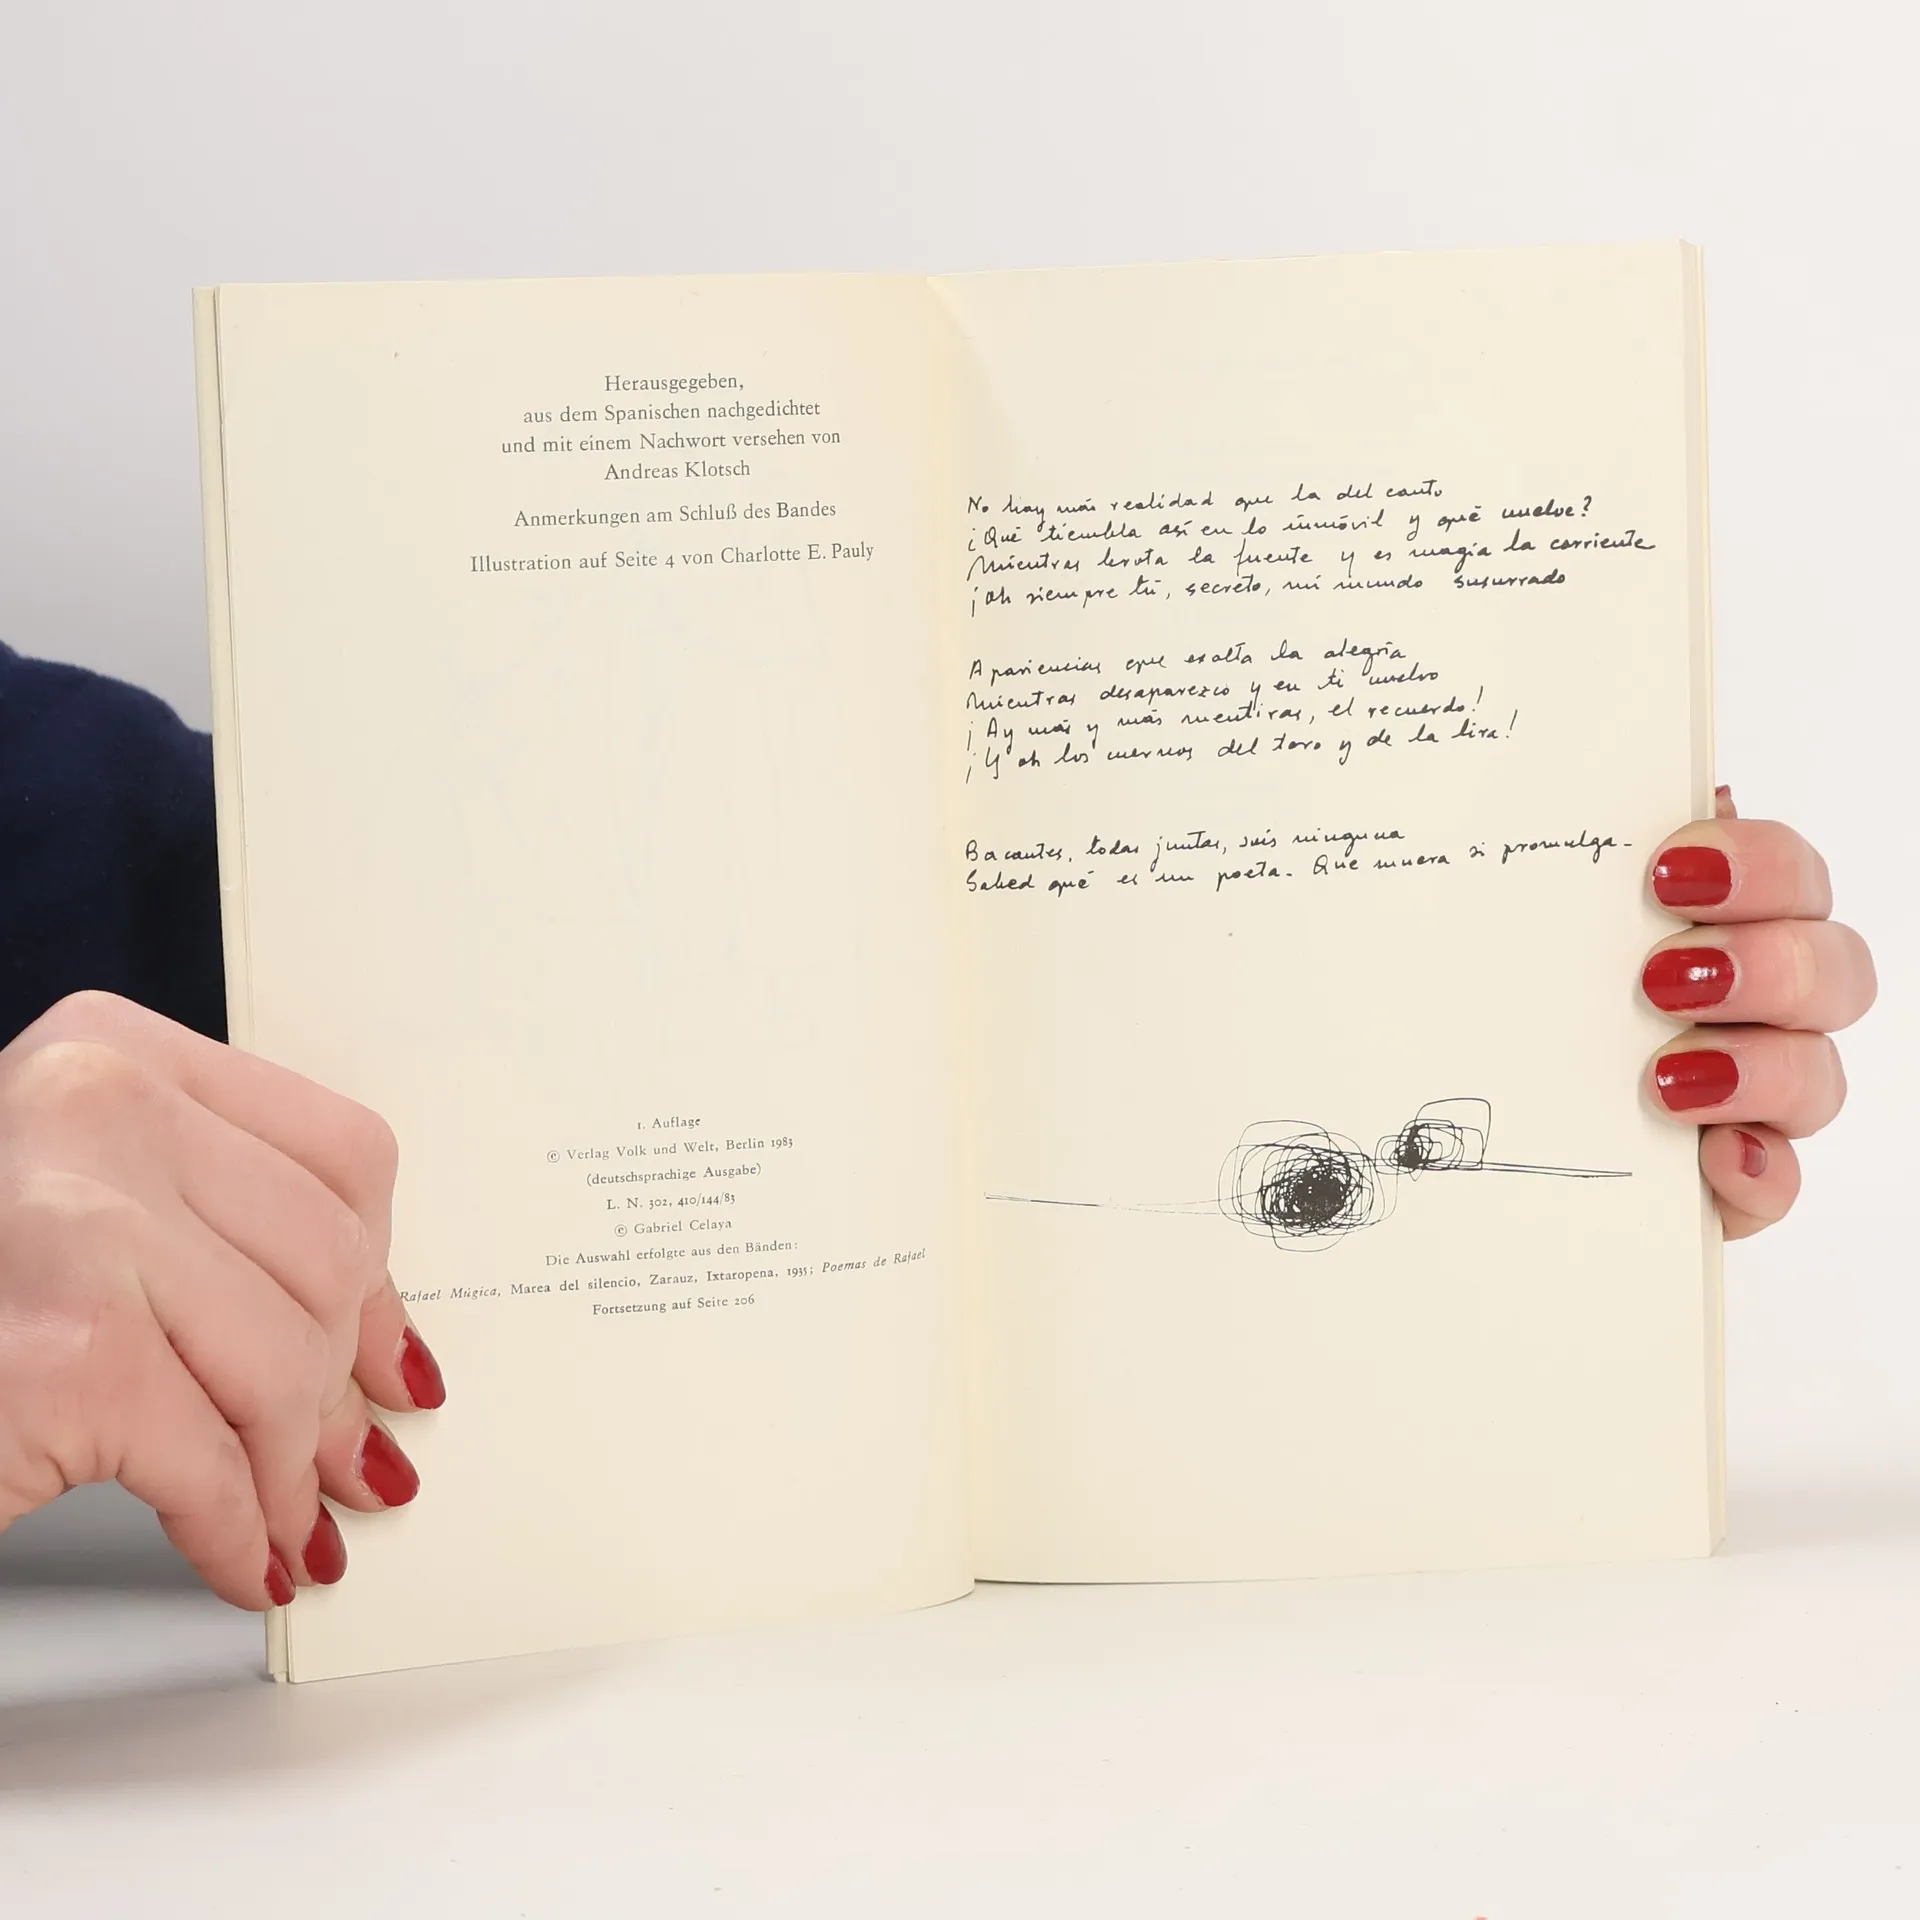 Herausgegeben,
aus dem Spanischen nachgedichtet
und mit einem Nachwort versehen von
Andreas Klotsch
Anmerkungen am Schluß des Bandes
Illustration auf Seite 4 von Charlotte E. Pauly
1. Auflage
© Verlag Volk und Welt, Berlin 1983
(deutschsprachige Ausgabe)
L. N. 302, 410/144/83
© Gabriel Celaya
Die Auswahl erfolgte aus den Bänden:
Rafael Múgica, Marea del silencio, Zarauz, Ixtaropena, 1935; Poemas de Rafael
Fortsetzung auf Seite 206
No hay más realidad que la del canto
¿Qué tiembla así en lo inmóvil y qué vuelve?
Mientras brota la fuente y es magia la corriente
¡oh siempre tú, secreto, mi mundo susurrado
Apariencias que exalta la alegría
Mientras desaparezco y en ti vuelvo
¡Ay más y más mentiras, el recuerdo!
¡Y oh los cuernos del toro y de la lira!
Bacantes, todas juntas, sois ninguna
Sabed qué es un poeta. Que muera si promulga.